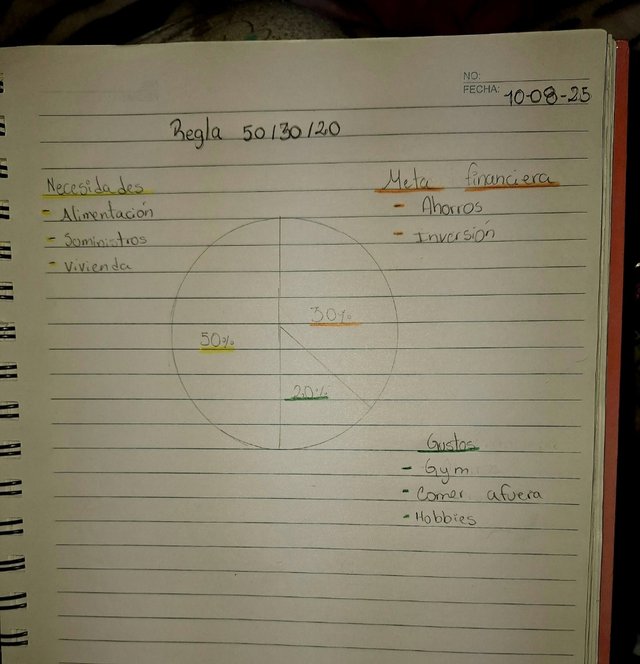 NO:
FECHA: 10-08-25
Regla 50/30/20
Necesidades
- Alimentación
- Suministros
- Vivienda
Meta financiera
- Ahorros
- Inversión
50%
30%
20%
Gustos
- Gym
- Comer afuera
- Hobbies